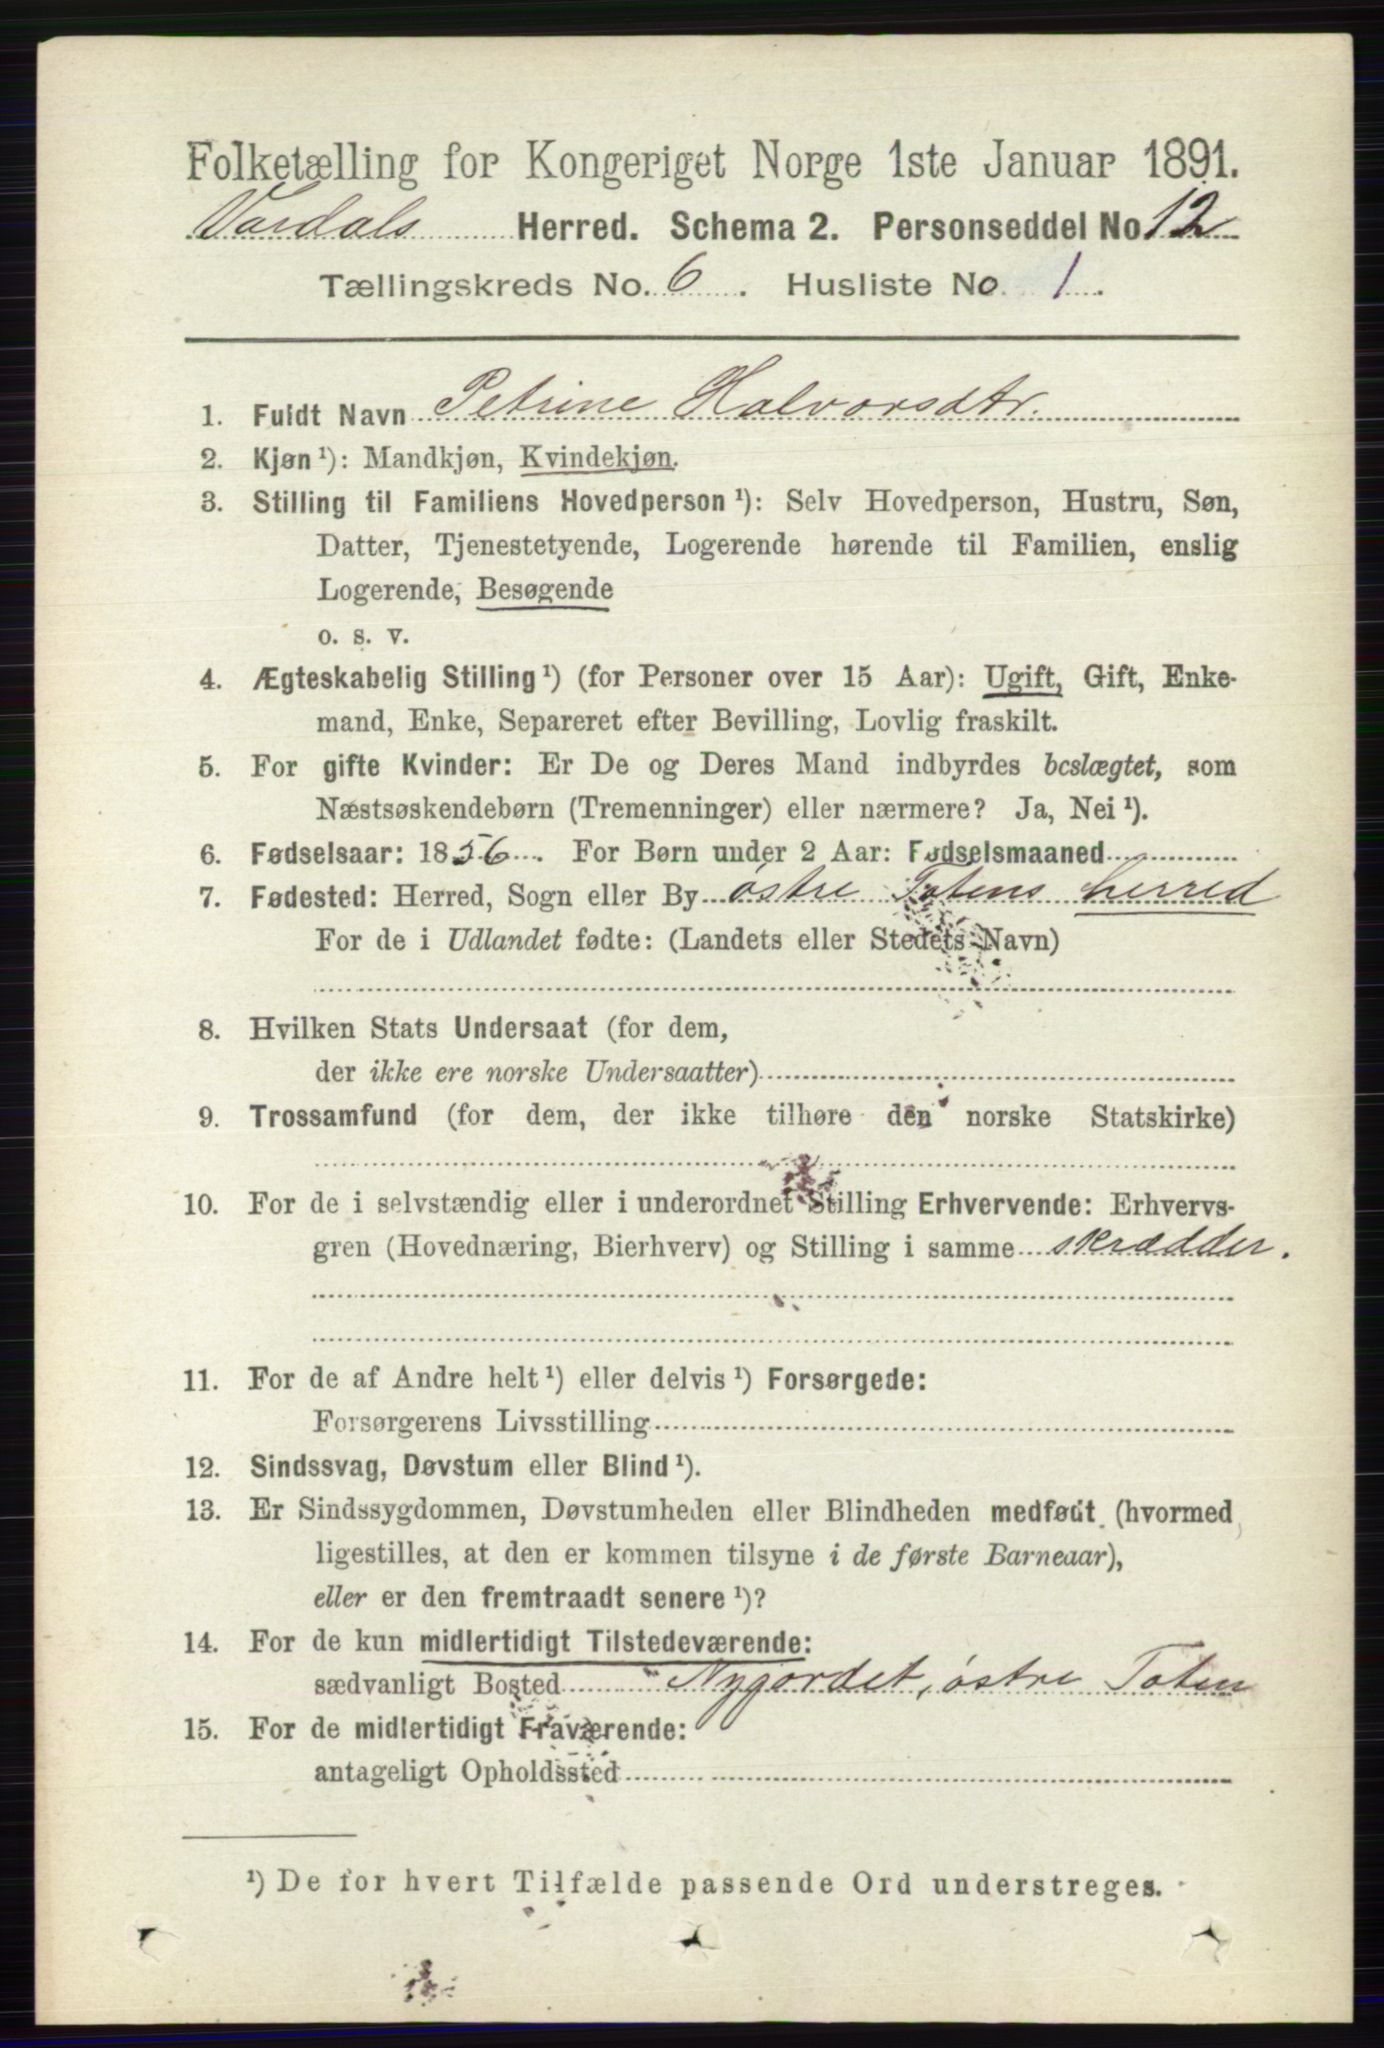 Folketælling for Kongeriget Norge 1ste Januar 1891.
Vardals Herred. Schema 2. Personseddel No 12
Tællingskreds No. 6. Husliste No. 1.
1. Fuldt Navn Petrine Halvorsdtr.
2. Kjøn ¹): Mandkjøn, Kvindekjøn.
3. Stilling til Familiens Hovedperson ¹): Selv Hovedperson, Hustru, Søn,
Datter, Tjenestetyende, Logerende hørende til Familien, enslig
Logerende, Besøgende
o. s. v.
4. Ægteskabelig Stilling ¹) (for Personer over 15 Aar): Ugift, Gift, Enke-
mand, Enke, Separeret efter Bevilling, Lovlig fraskilt.
5. For gifte Kvinder: Er De og Deres Mand indbyrdes beslægtet, som
Næstsøskendebørn (Tremenninger) eller nærmere? Ja, Nei ¹).
6. Fødselsaar: 1856. For Børn under 2 Aar: Fødselsmaaned
7. Fødested: Herred, Sogn eller By østre Totens herred
For de i Udlandet fødte: (Landets eller Stedets Navn)
8. Hvilken Stats Undersaat (for dem,
der ikke ere norske Undersaatter)
9. Trossamfund (for dem, der ikke tilhøre den norske Statskirke)
10. For de i selvstændig eller i underordnet Stilling Erhvervende: Erhvervs-
gren (Hovednæring, Bierhverv) og Stilling i samme skrædder.
11. For de af Andre helt ¹) eller delvis ¹) Forsørgede:
Forsørgerens Livsstilling
12. Sindssvag, Døvstum eller Blind ¹).
13. Er Sindssygdommen, Døvstumheden eller Blindheden medfødt (hvormed
ligestilles, at den er kommen tilsyne i de første Barneaar),
eller er den fremtraadt senere ¹)?
14. For de kun midlertidigt Tilstedeværende:
sædvanligt Bosted Nygordet, østre Toten
15. For de midlertidigt Fraværende:
antageligt Opholdssted
¹) De for hvert Tilfælde passende Ord understreges.